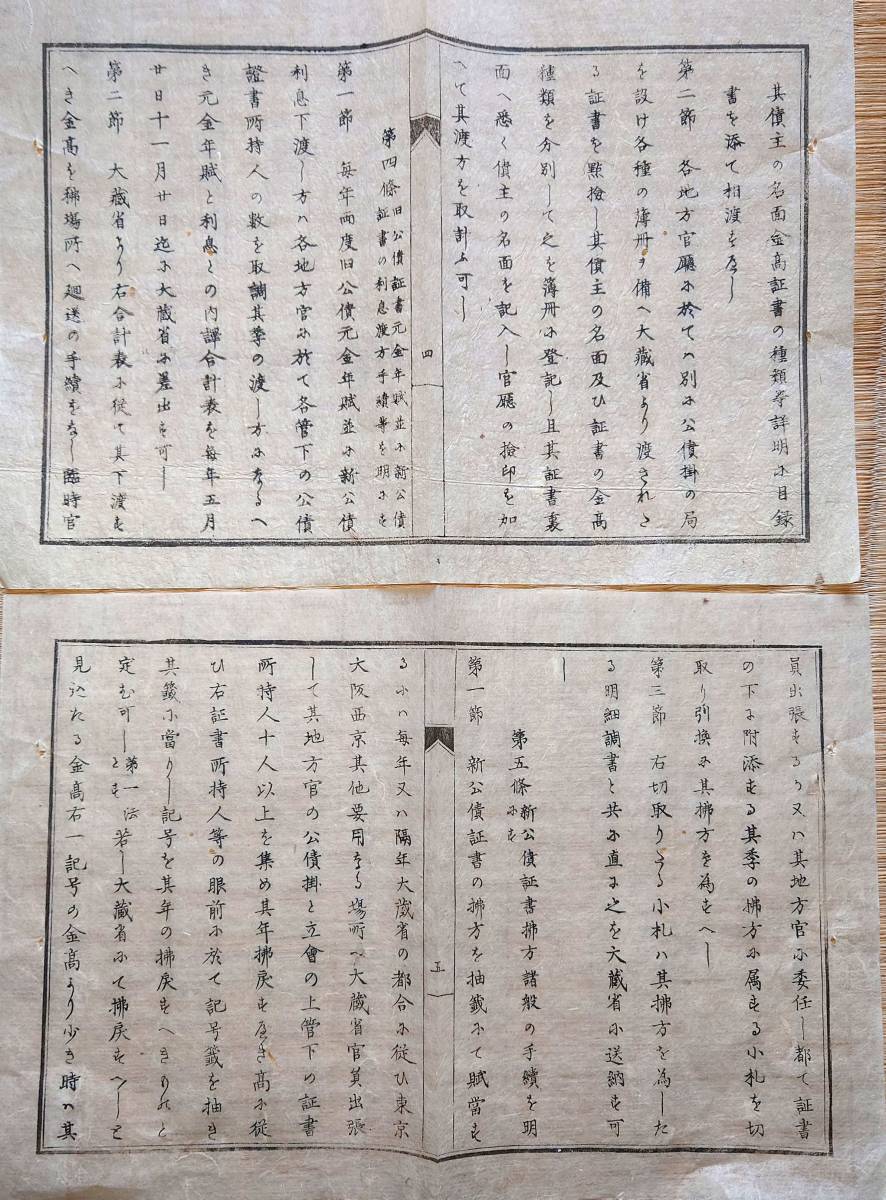 其債主の名面金高証書の種類等詳明に目録
書を添て相渡すへし
第二節 各地方官廳に於てハ別に公債掛の局
を設け各種の薄冊を備へ大蔵省より渡された
る証書を點撿し其債主の名面及ひ証書の金高
種類を分別して之を簿冊に登記し且其証書裏
面へ悉く債主の名面を記入し官廳の撿印を加
へて其渡方を取計ふ可し
四
第四條 旧公債証書元金年賦並に新公債
証書の利息渡方手續等を明にす
第一節 毎年両度旧公債元金年賦並に新公債
利息下渡し方ハ各地方官に於て各管下の公債
證書所持人の数を取調其季の渡し方になるへ
き元金年賦と利息との内譯合計表を毎年五月
廿日十一月廿日迄に大蔵省に差出す可し
第二節 大蔵省より右合計表に従て其下渡す
へき金高を拂場所へ廻送の手續をなし臨時官
員出張するか又ハ其地方官に委任し都て証書
の下に附添する其季の拂方に属する小札を切
取り引換に其拂方を為すへし
第三節 右切取りたる小札ハ其拂方を為した
る明細調書と共に直に之を大蔵省に送納す可
し
五
第五條 新公債証書拂方諸般の手續を明
にす
第一節 新公債証書の拂方を抽籤にて賦當す
るにハ毎年又ハ隔年大蔵省の都合に従ひ東京
大阪西京其他要用なる場所へ大蔵省官員出張
して其地方官の公債掛と立會の上管下の証書
所持人十人以上を集め其年拂戻すへき高に従
ひ右証書所持人等の眼前に於て記号籤を抽き
其籤に當りし記号を其年の拂戻すへきものと
定む可し 第一法とす 若し大蔵省にて拂戻すへしと
見込たる金高右一記号の金高より少き時ハ其